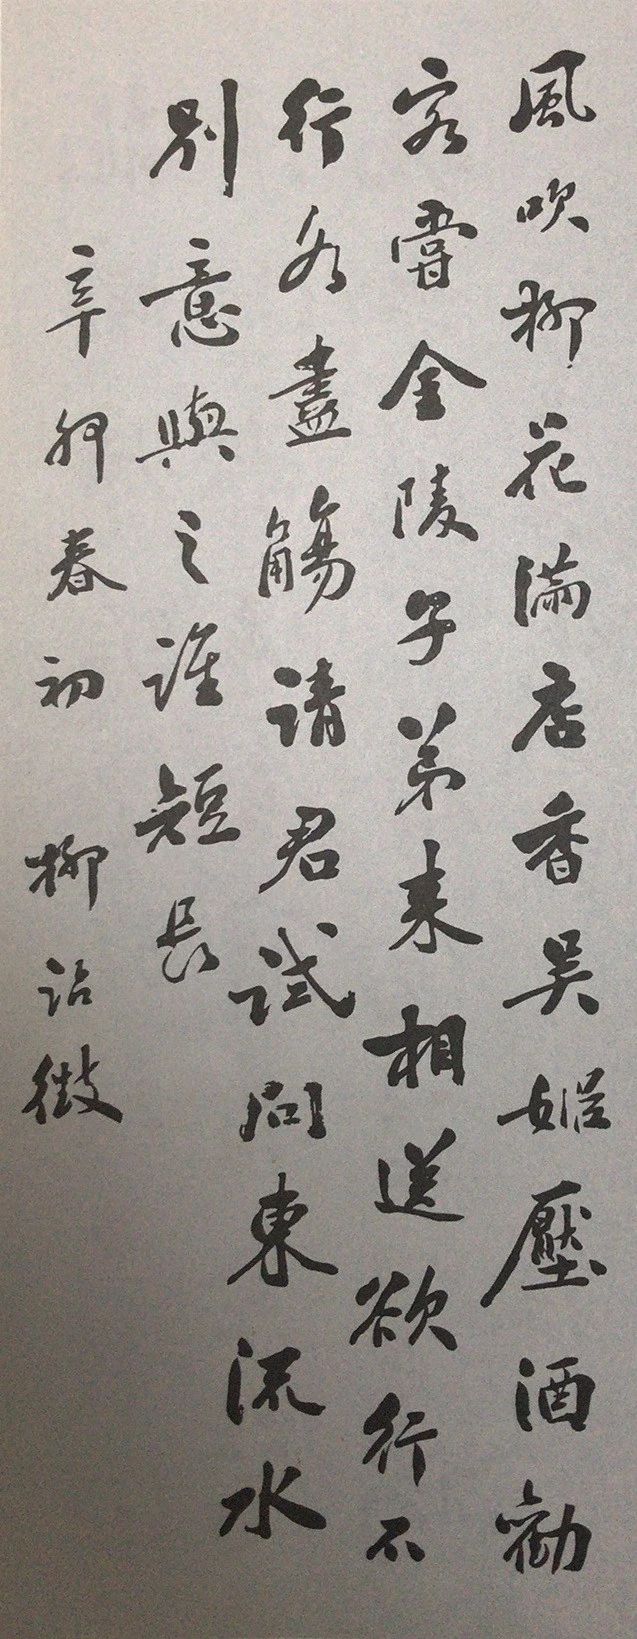 風吹柳花滿店香吳姬壓酒勸
客嘗金陵子弟來相送欲行不
行各盡觴請君試問東流水
別意與之誰短長
辛卯春初 柳詒徵